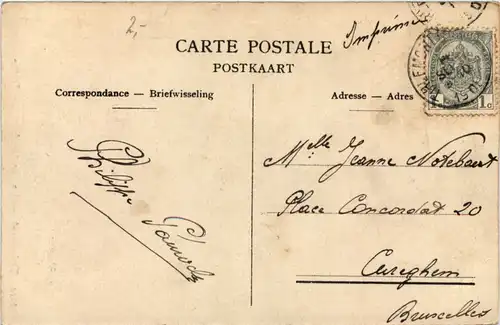 2,-
Imprimé
CARTE POSTALE
POSTKAART
Correspondance — Briefwisseling
Adresse — Adres
1 1c
Philippe
Mlle Jeanne Notebaert
Place Concordat 20
Cureghem
Bruxelles